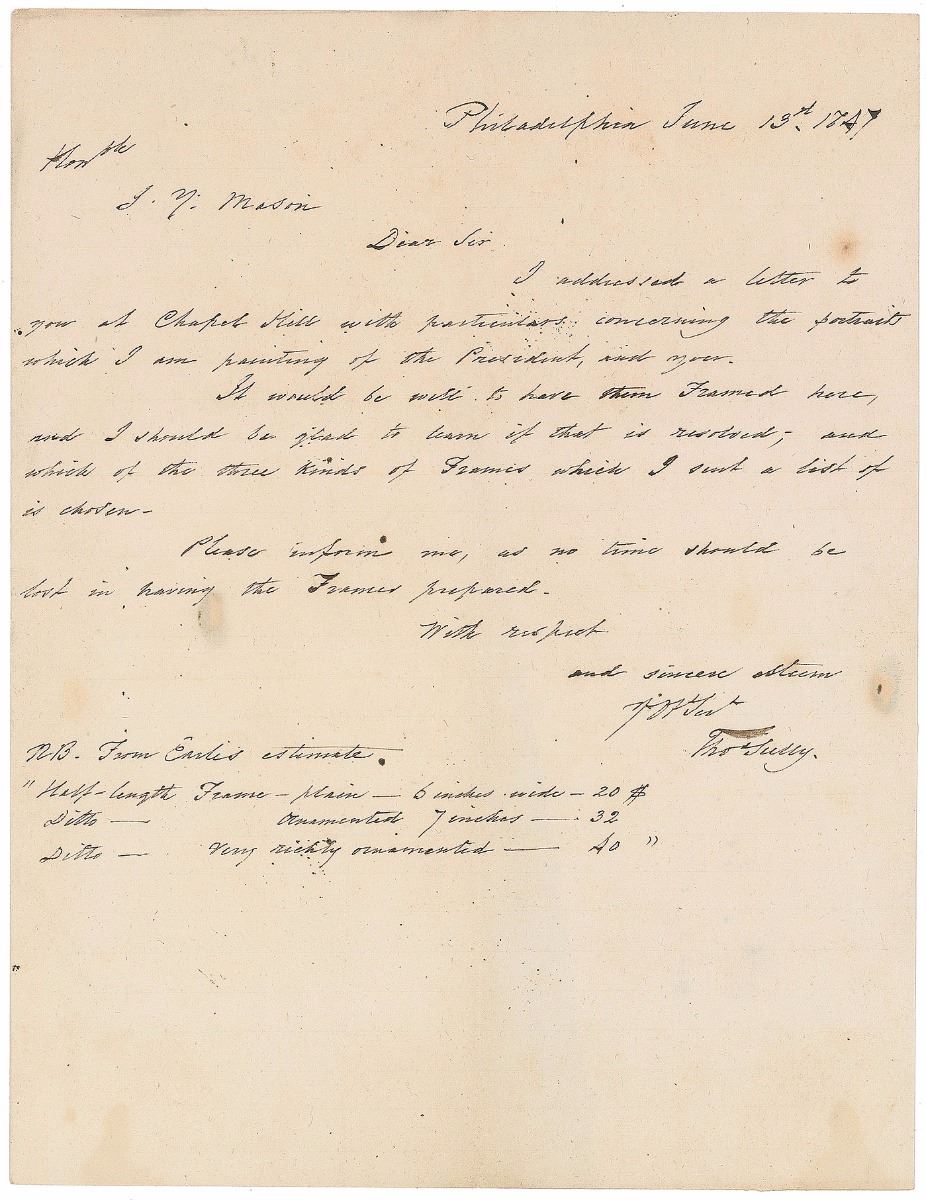 Philadelphia June 13th 1847
Honble
J. Y. Mason
Dear Sir
I addressed a letter to
you at Chapel Hill with particulars concerning the portraits
which I am painting of the President, and you.
It would be well to have them Framed here,
and I should be glad to learn if that is resolved; and
which of the three kinds of Frames which I sent a list of
is chosen -
Please inform me, as no time should be
lost in having the Frames prepared.
With respect
and sincere esteem
Thos Sully.
N.B. From Earle's estimate.
" Half-length Frame - plain - 6 inches wide - 20 $
Ditto - Ornamented 7 inches - 32
Ditto - Very richly ornamented - 40 "